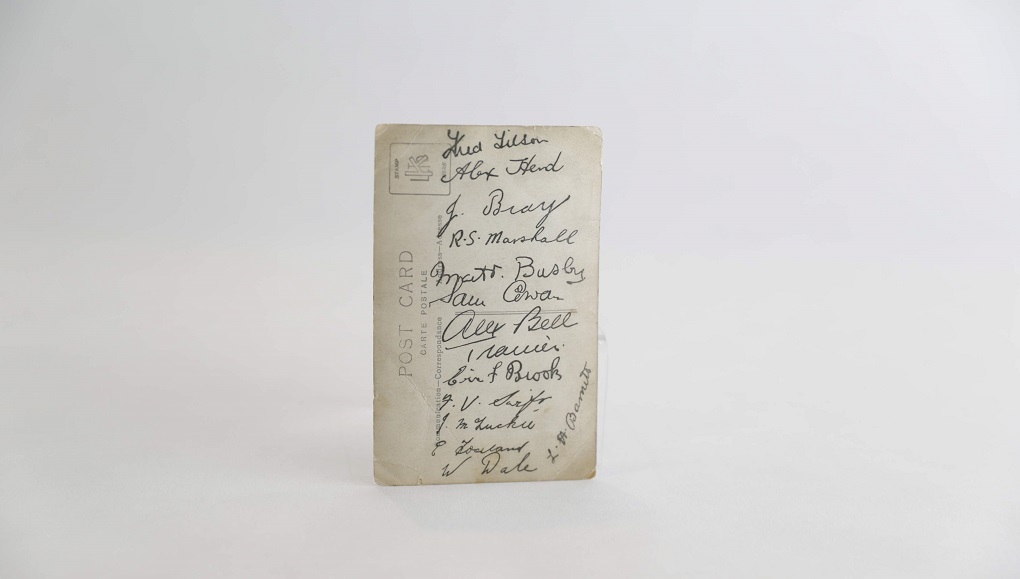 Fred Tilson
Alex Herd
J. Bray
R.S. Marshall
Matt. Busby
Sam Cowan
Alex Bell
Trainer.
Eric F Brook
F. V. Swift
J. McLuckie
W Dale
L. H. Barnett
POST CARD
CARTE POSTALE
Communication—Correspondence
STAMP